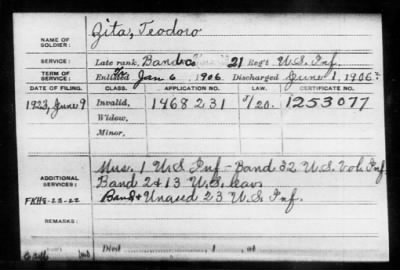 NAME OF SOLDIER: Zita, Teodoro
SERVICE: Late rank, Band Co 21 Reg't U.S. Inf.
TERM OF SERVICE: Enlisted Jan 6, 1906. Discharged June 1, 1906
DATE OF FILING. CLASS. APPLICATION NO. LAW. CERTIFICATE NO.
1923, June 9 Invalid, 1468231 7/20. 1253077
Widow,
Minor,
ADDITIONAL SERVICES: Mus. 1 U.S. Inf - Band 32 U.S. Vol. Inf
Band 2 & 13 U.S. Cav.
Band & Unasgd 23 U.S. Inf.
REMARKS:
Died , 1 , at